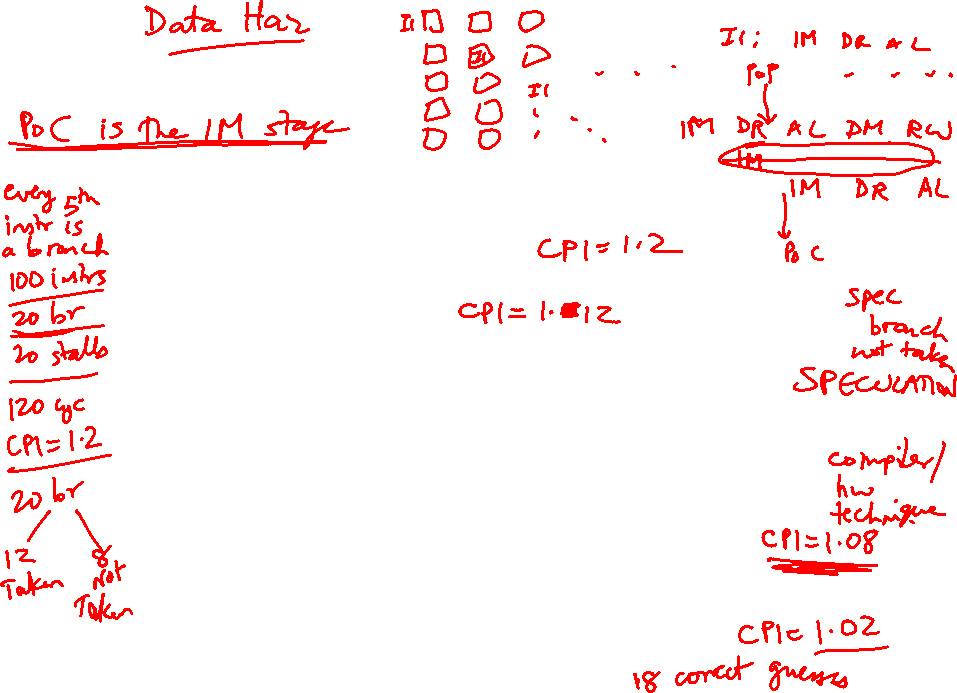 Data Haz
PoC is the IM stage
every 5th
instr is
a branch
100 instrs
20 br
20 stalls
120 cyc
CPI = 1.2
20 br
12
Taken
8
Not
Taken
I1
I1
I1
CPI = 1.2
CPI = 1.12
I1: IM DR AL
PoP
IM DR AL DM RW
IM
IM DR AL
PoC
spec
branch
not taken
SPECULATION
compiler/
hw
technique
CPI = 1.08
CPI = 1.02
18 correct guesses